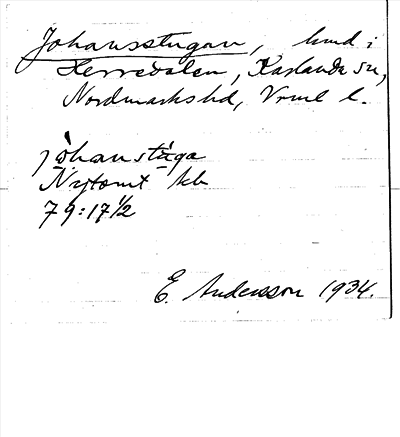 Johansstugan, hmd i
Herredalen, Karlanda sn,
Nordmarks hd, Vrml l.
jòhanstùga
Nyttomt kb
79:17½
E. Andersson 1934.